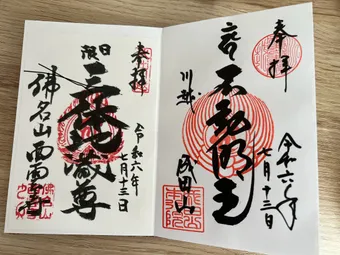 奉拝
不動明王
川越
成田山
令和六年
七月十三日
奉拝
日限
三体地蔵尊
令和六年
七月十三日
佛名山西雲寺